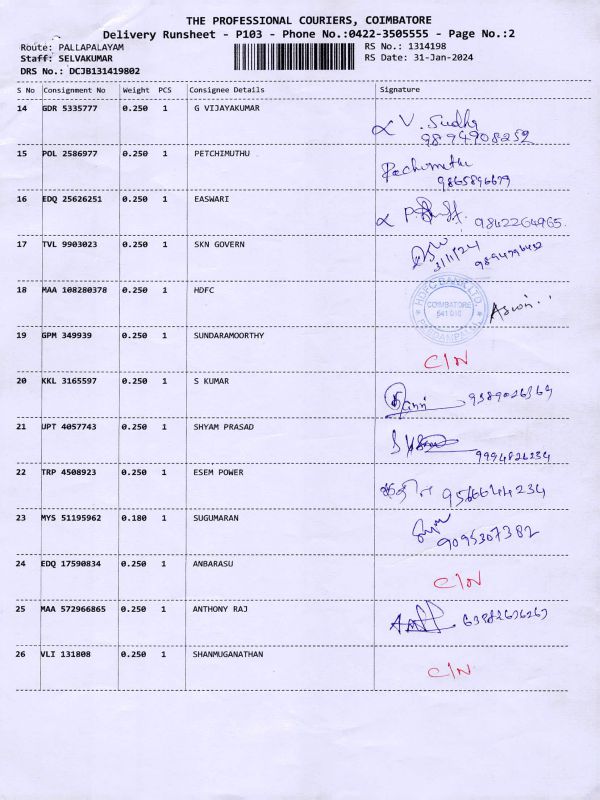 THE PROFESSIONAL COURIERS, COIMBATORE
Delivery Runsheet - P103 - Phone No.:0422-3505555 - Page No.:2
Route: PALLAPALAYAM RS No.: 1314198
Staff: SELVAKUMAR RS Date: 31-Jan-2024
DRS No.: DCJB131419802
S No Consignment No Weight PCS Consignee Details Signature
14 GDR 5335777 0.250 1 G VIJAYAKUMAR
V. Sudha
9894908252
15 POL 2586977 0.250 1 PETCHIMUTHU
9865896679
16 EDQ 25626251 0.250 1 EASWARI
9842264965
17 TVL 9903023 0.250 1 SKN GOVERN
31/1/24
18 MAA 108280378 0.250 1 HDFC
HDFC BANK LTD.
COIMBATORE
641 018
19 GPM 349939 0.250 1 SUNDARAMOORTHY
C/N
20 KKL 3165597 0.250 1 S KUMAR
21 UPT 4057743 0.250 1 SHYAM PRASAD
9994826234
22 TRP 4508923 0.250 1 ESEM POWER
9566644234
23 MYS 51195962 0.180 1 SUGUMARAN
9095307382
24 EDQ 17590834 0.250 1 ANBARASU
C/N
25 MAA 572966865 0.250 1 ANTHONY RAJ
26 VLI 131808 0.250 1 SHANMUGANATHAN
C/N